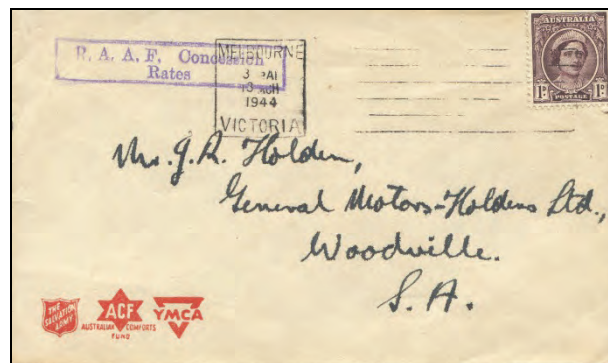 R. A. A. F. Concession
Rates
MELBOURNE
1944
VICTORIA
AUSTRALIA
1D 1D
POSTAGE
General Motors-Holdens Ltd.,
Woodville.
S. A.
THE
SALVATION
ARMY
ACF
AUSTRALIAN COMFORTS
FUND
YMCA